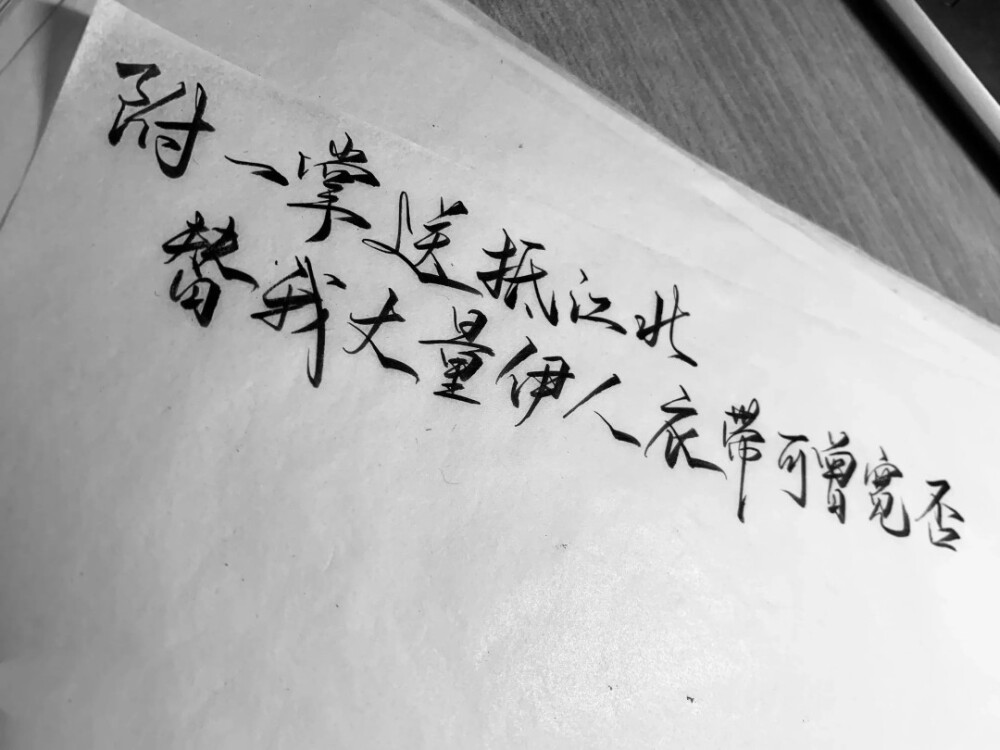 附一掌送抵江北
替我丈量伊人衣带可曾宽否